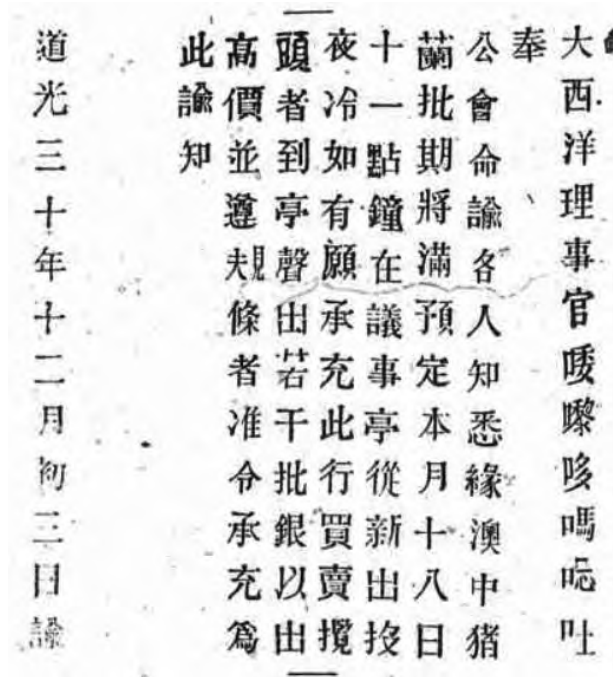 大西洋理事官嚟哆嗎吐
奉
公會命諭各人知悉緣澳中猪
蘭批期將滿預定本月十八日
十一點鐘在議事亭從新出投
夜冷如有願承充此行買賣攬
頭者到亭聲出若干批銀以出
高價並遵規條者准令承充爲
此諭知
道光三十年十二月初二日諭